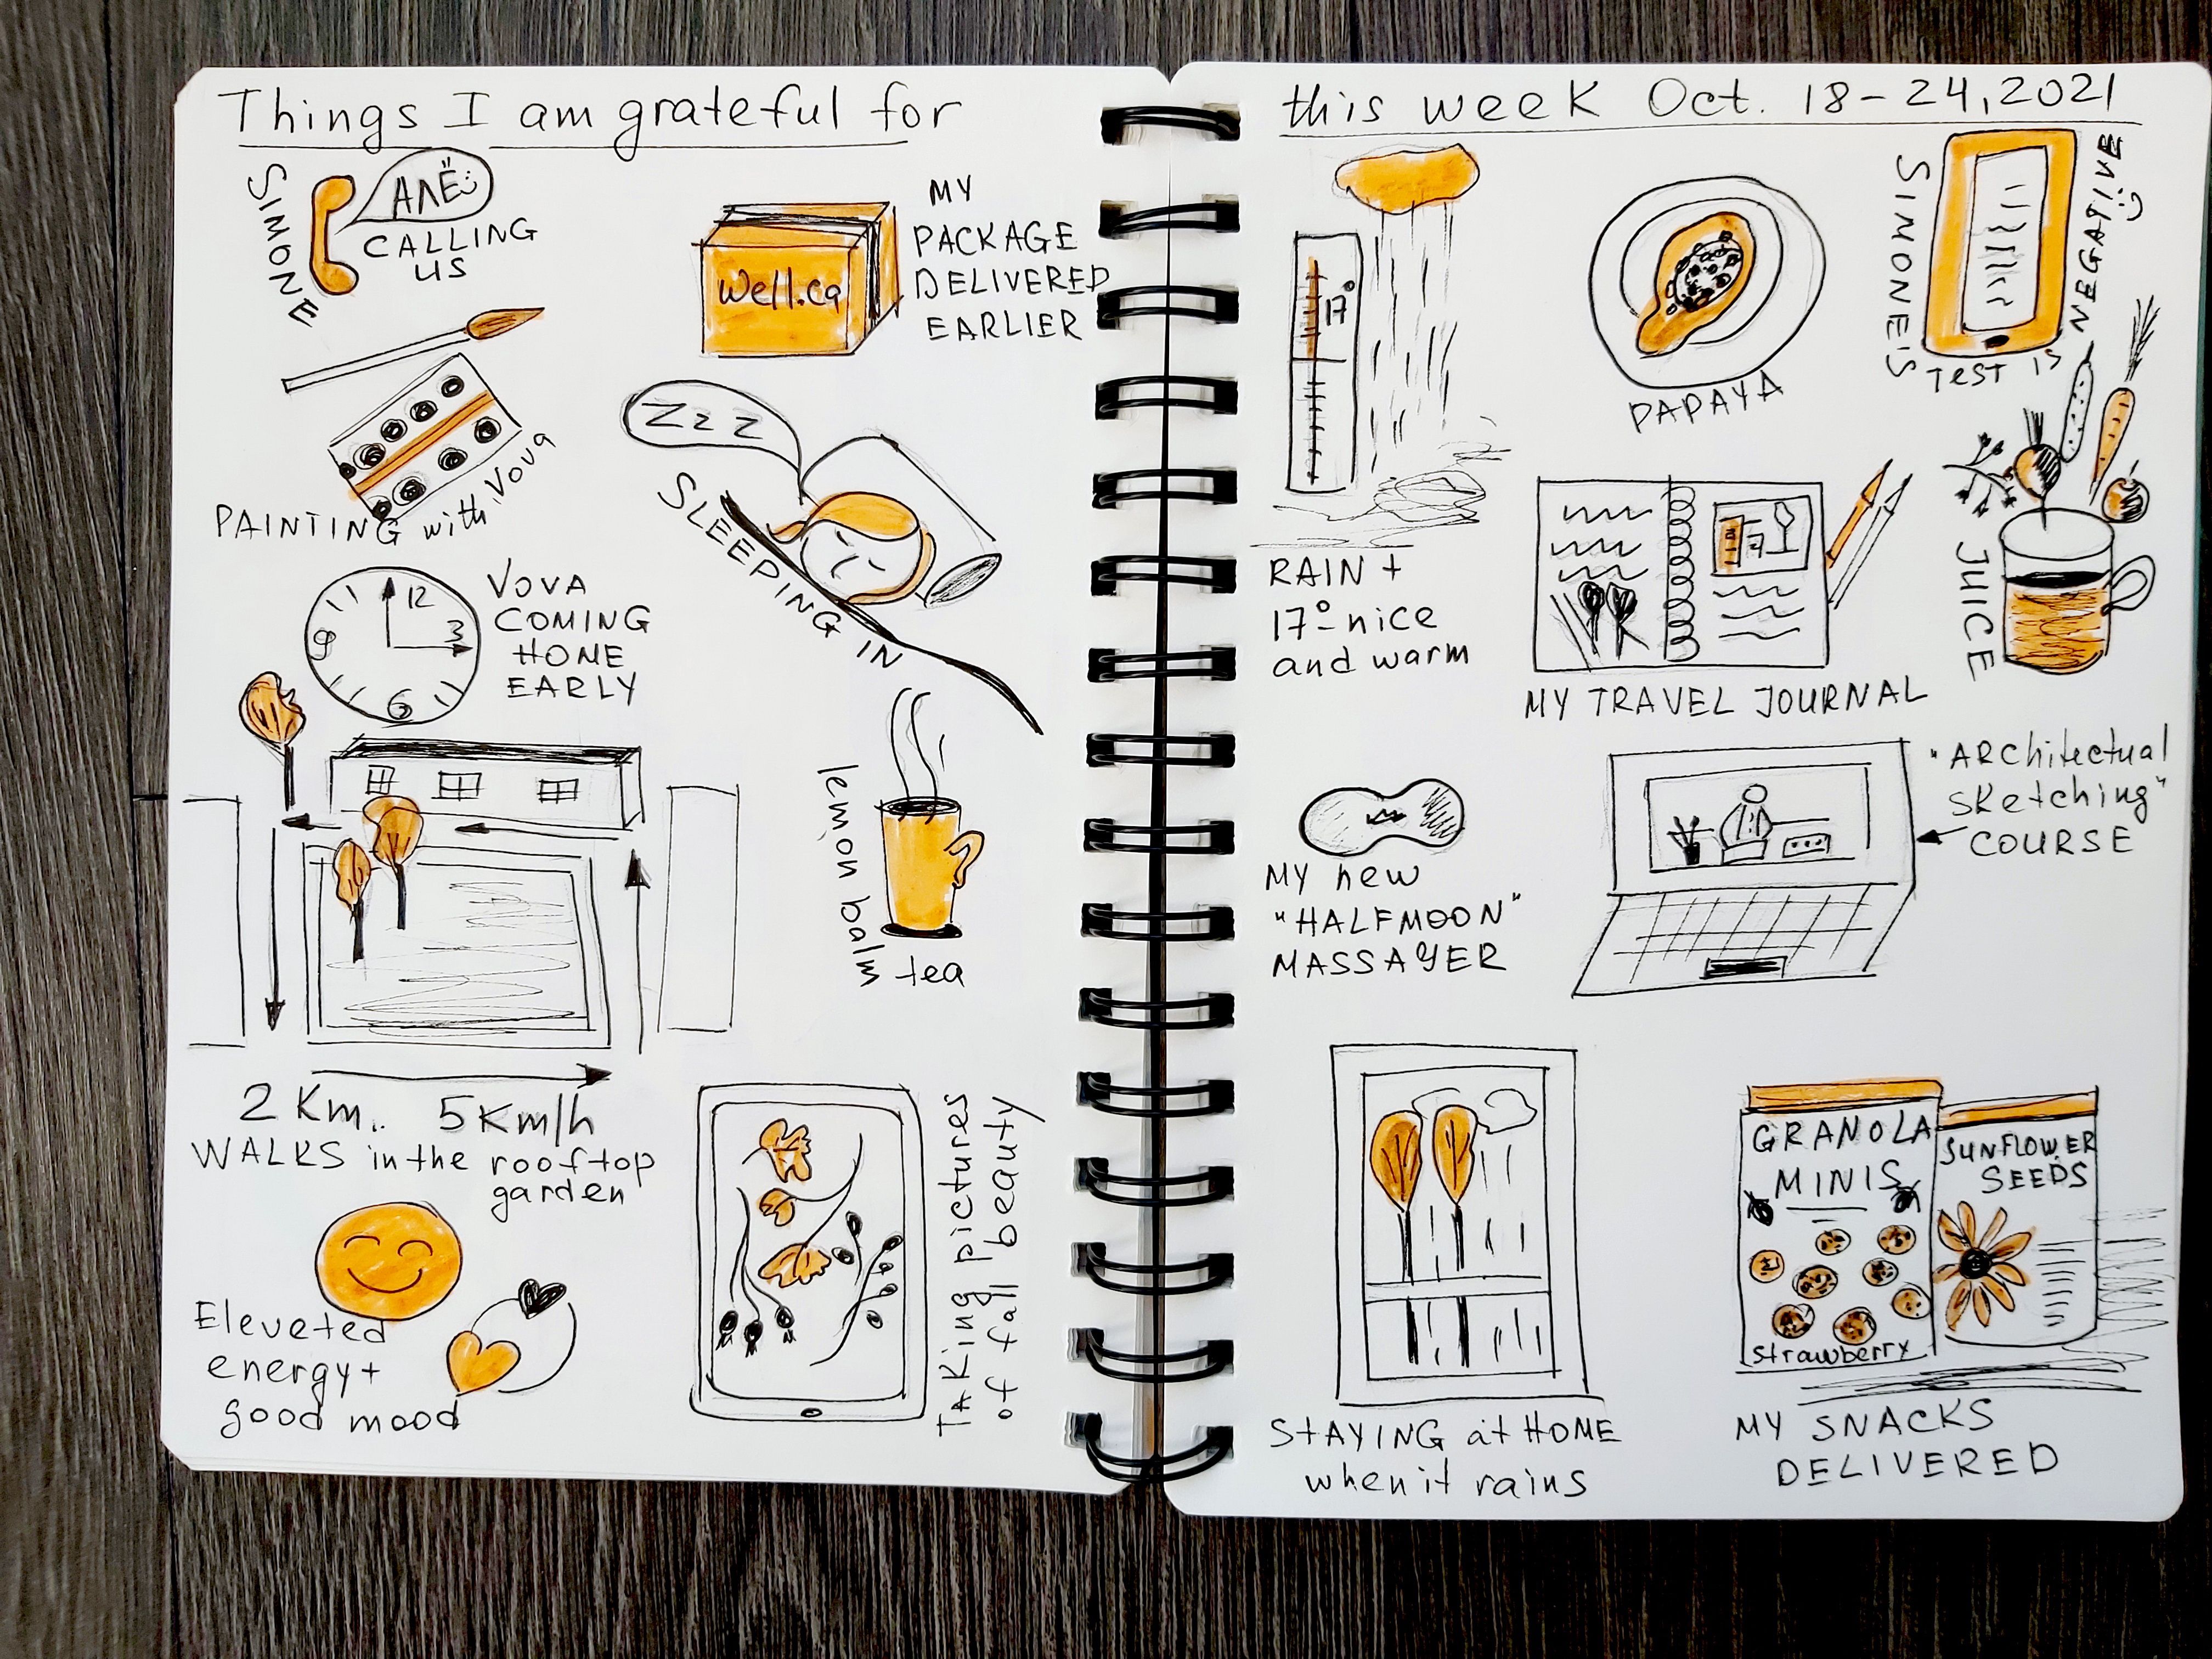 Things I am grateful for
SIMONE
АЛЁ
CALLING
US
MY
PACKAGE
DELIVERED
EARLIER
Well.ca
PAINTING with Vova
Z Z Z
SLEEPING IN
12
3
6
9
VOVA
COMING
HOME
EARLY
lemon balm tea
2 Km. 5 Km/h
WALKS in the rooftop
garden
Eleveted
energy +
good mood
TAKING pictures
of fall beauty
this week Oct. 18-24, 2021
17°
RAIN +
17° - nice
and warm
PAPAYA
SIMONE'S
TEST IS
NEGATIVE
17
MY TRAVEL JOURNAL
JUICE
MY new
"HALFMOON"
MASSAGER
"ARchitectual
Sketching"
COURSE
STAYING at HOME
when it rains
GRANOLA
MINIS
strawberry
SUNFLOWER
SEEDS
MY SNACKS
DELIVERED